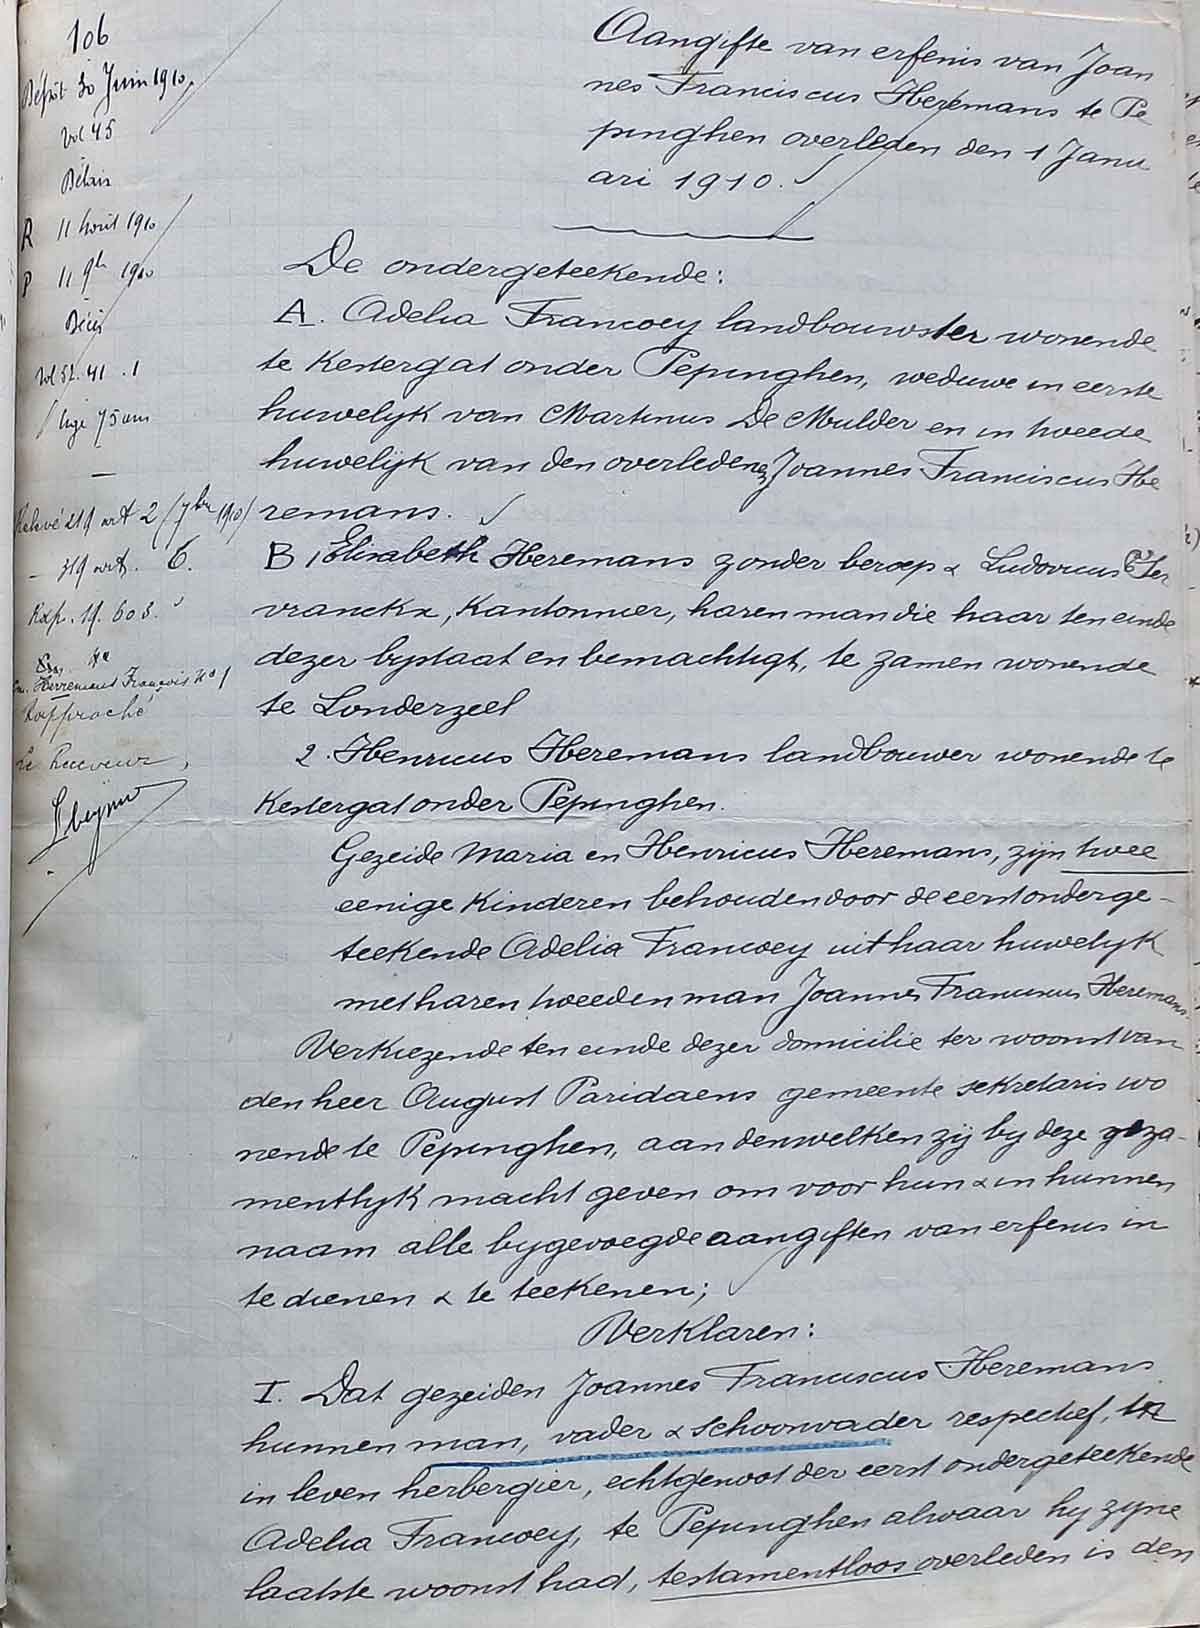 106
Dépôt 30 Juin 1910
Vol 45
Délais
R 11 Août 1910
P 11 9bre 1910
Décès
Vol 52. 41 . 1
âgé 75 ans
Relevé 219 art 2 (7bre 1910)
- 319 art. 6.
Rép. 19. 603.
Herremans François No 1
Rapproché
Le Receveur,
Aangifte van erfenis van Joan
nes Franciscus Heremans te Pe
pinghen overleden den 1 Janu
ari 1910.
De ondergeteekende:
A. Adelia Francoey landbouwster wonende
te Kestergat onder Pepinghen, weduwe in eerste
huwelijk van Martinus De Mulder en in tweede
huwelijk van den overledene Joannes Franciscus He
remans.
B 1 Elisabeth Heremans zonder beroep & Ludovicus Ser
vranckx, Kantonnier, haren man die haar ten einde
dezer bystaat en bemachtigt, te zamen wonende
te Londerzeel
2. Henricus Heremans landbouwer wonende te
Kestergat onder Pepinghen.
Gezeide Maria en Henricus Heremans, zijn twee
eenige Kinderen behouden door de eerst onderge-
teekende Adelia Francoey uit haar huwelyk
met haren tweeden man Joannes Franciscus Heremans.
Verkiezende ten einde dezer domicilie ter woonst van
den heer August Paridaens gemeente sekretaris wo
nende te Pepinghen, aan denwelken zij by deze geza-
mentlyk macht geven om voor hun & in hunnen
naam alle bygevoegde aangiften van erfenis in
te dienen & te teekenen;
Verklaren:
I. Dat gezeiden Joannes Franciscus Heremans
hunnen man, vader & schoonvader respectief,
in leven herbergier, echtgenoot der eerst ondergeteekende
Adelia Francoey, te Pepinghen alwaar hy zyne
laatste woonst had, testamentloos overleden is den